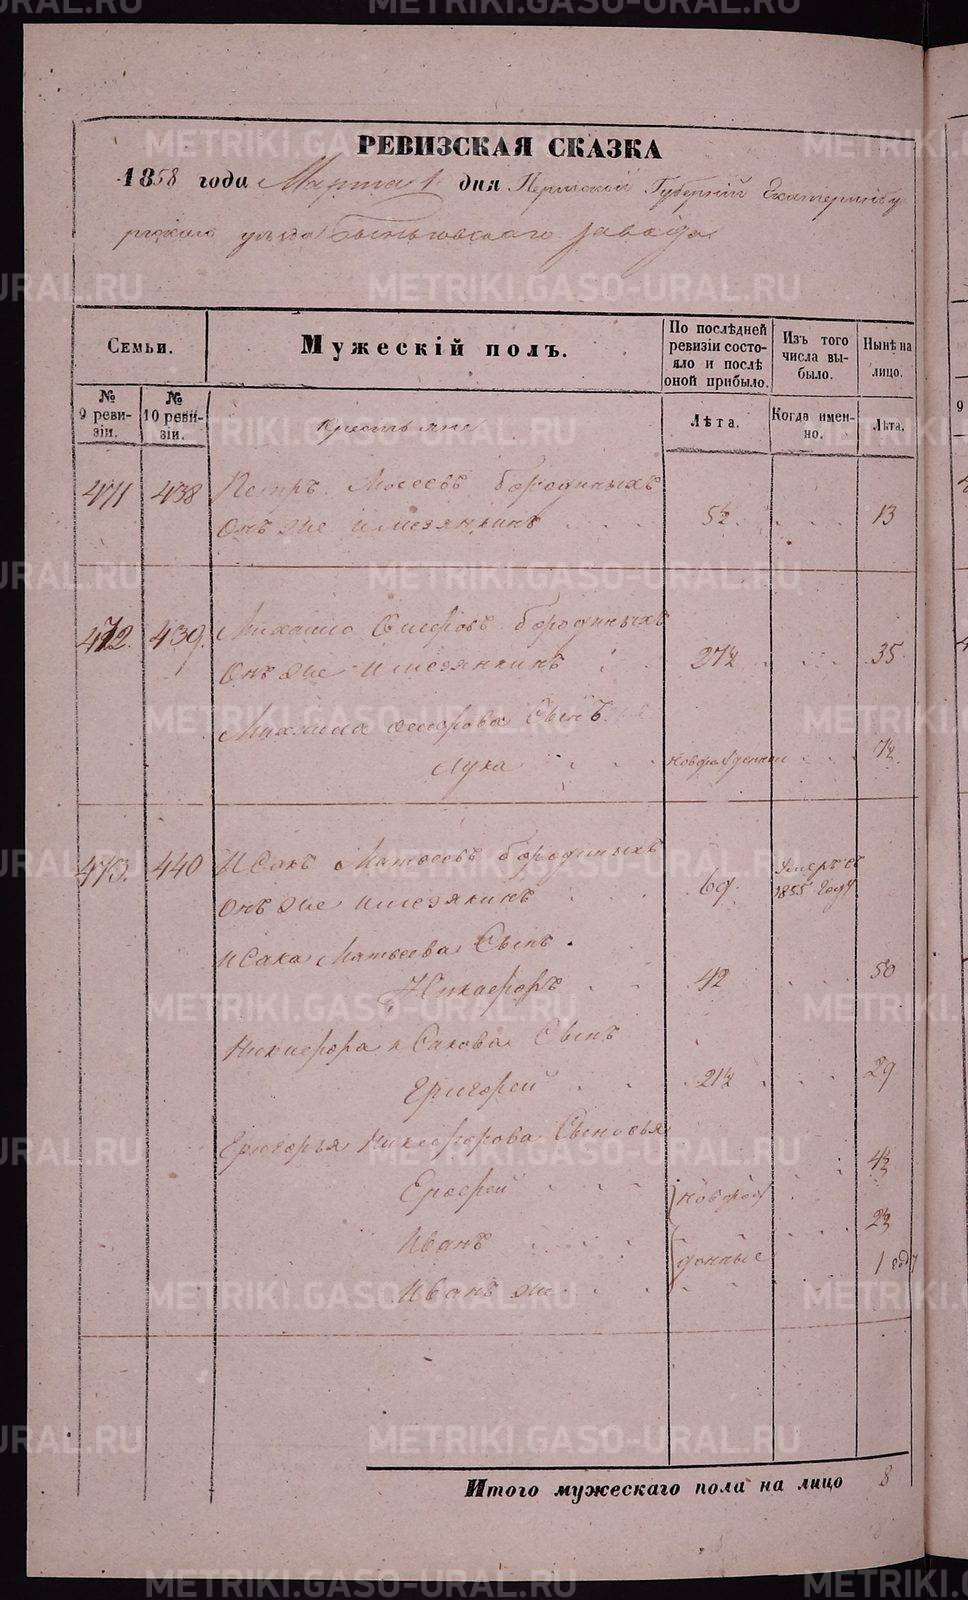 METRIKI.GASO-URAL.RU
РЕВИЗСКАЯ СКАЗКА
1858 года Марта 1 дня Пермской Губернии Екатеринбу
ргскаго уезда Быньговскаго завода
Семьи.
Мужескій полъ.
По послѣдней ревизіи состояло и послѣ оной прибыло.
Изъ того числа выбыло.
Нынѣ на лицо.
№ 9 ревизіи.
№ 10 ревизіи.
Крестьяне
Лѣта.
Когда именно.
Лѣта.
471 438 Петръ Мосеевъ Бородиныхъ
Онъ же 5½ 13
472. 439. Михайло Бородиныхъ
Онъ же 27½ 35
Михаила Сынъ
Лука новорожденный ½
473. 440 Исакъ Матвеевъ Бородиныхъ Умеръ въ
Онъ же 69 1855 году
Исака Матвеева Сынъ
Никифоръ 42 50
Никифора Исакова Сынъ
Григорей 21½ 29
Григорья Никифорова Сыновья
Ерофей новорож 4½
Иванъ 2½
денные
Иванъ же 1 году
Итого мужескаго пола на лицо 8